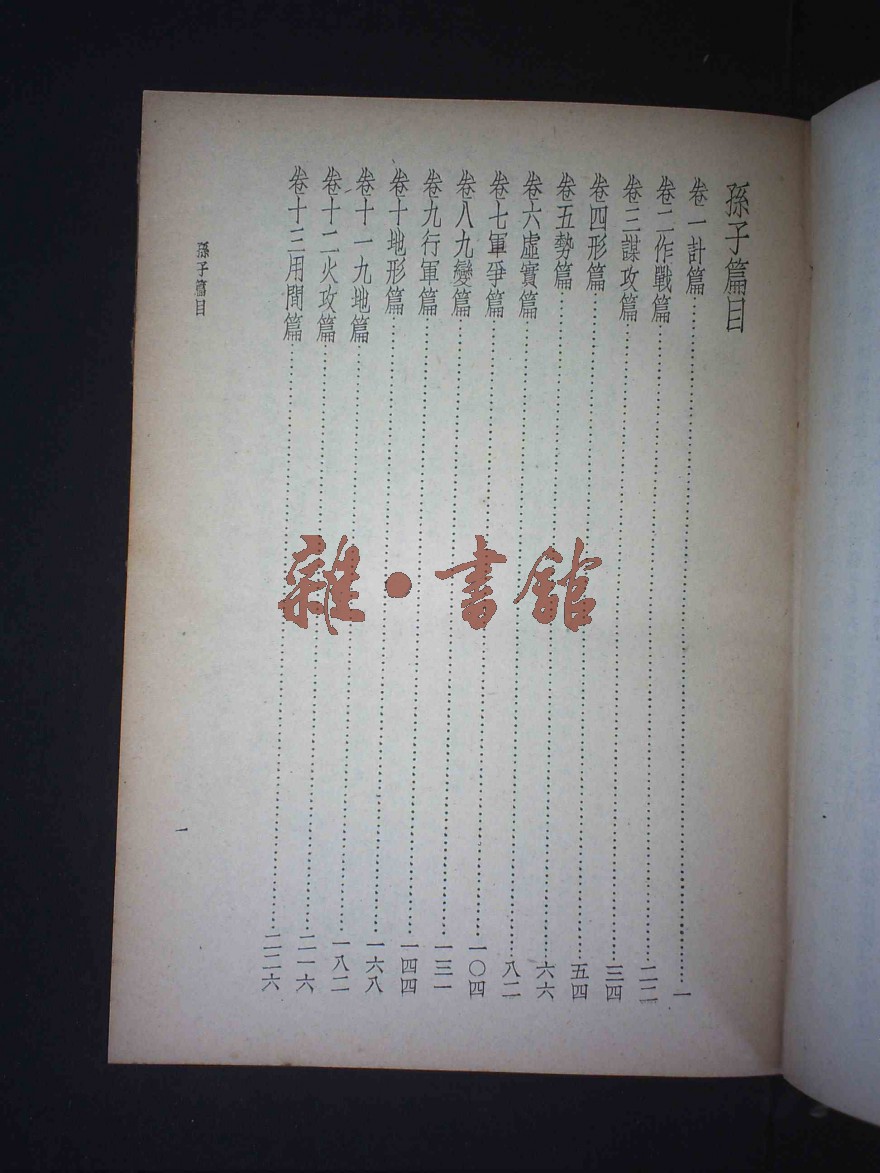 孫子篇目
卷一計篇……一
卷二作戰篇……二二
卷三謀攻篇……三四
卷四形篇……五四
卷五勢篇……六六
卷六虛實篇……八二
卷七軍爭篇……一〇四
卷八九變篇……一三一
卷九行軍篇……一四四
卷十地形篇……一六八
卷十一九地篇……一八二
卷十二火攻篇……二一六
卷十三用間篇……二二六
孫子篇目
一
雜·書館